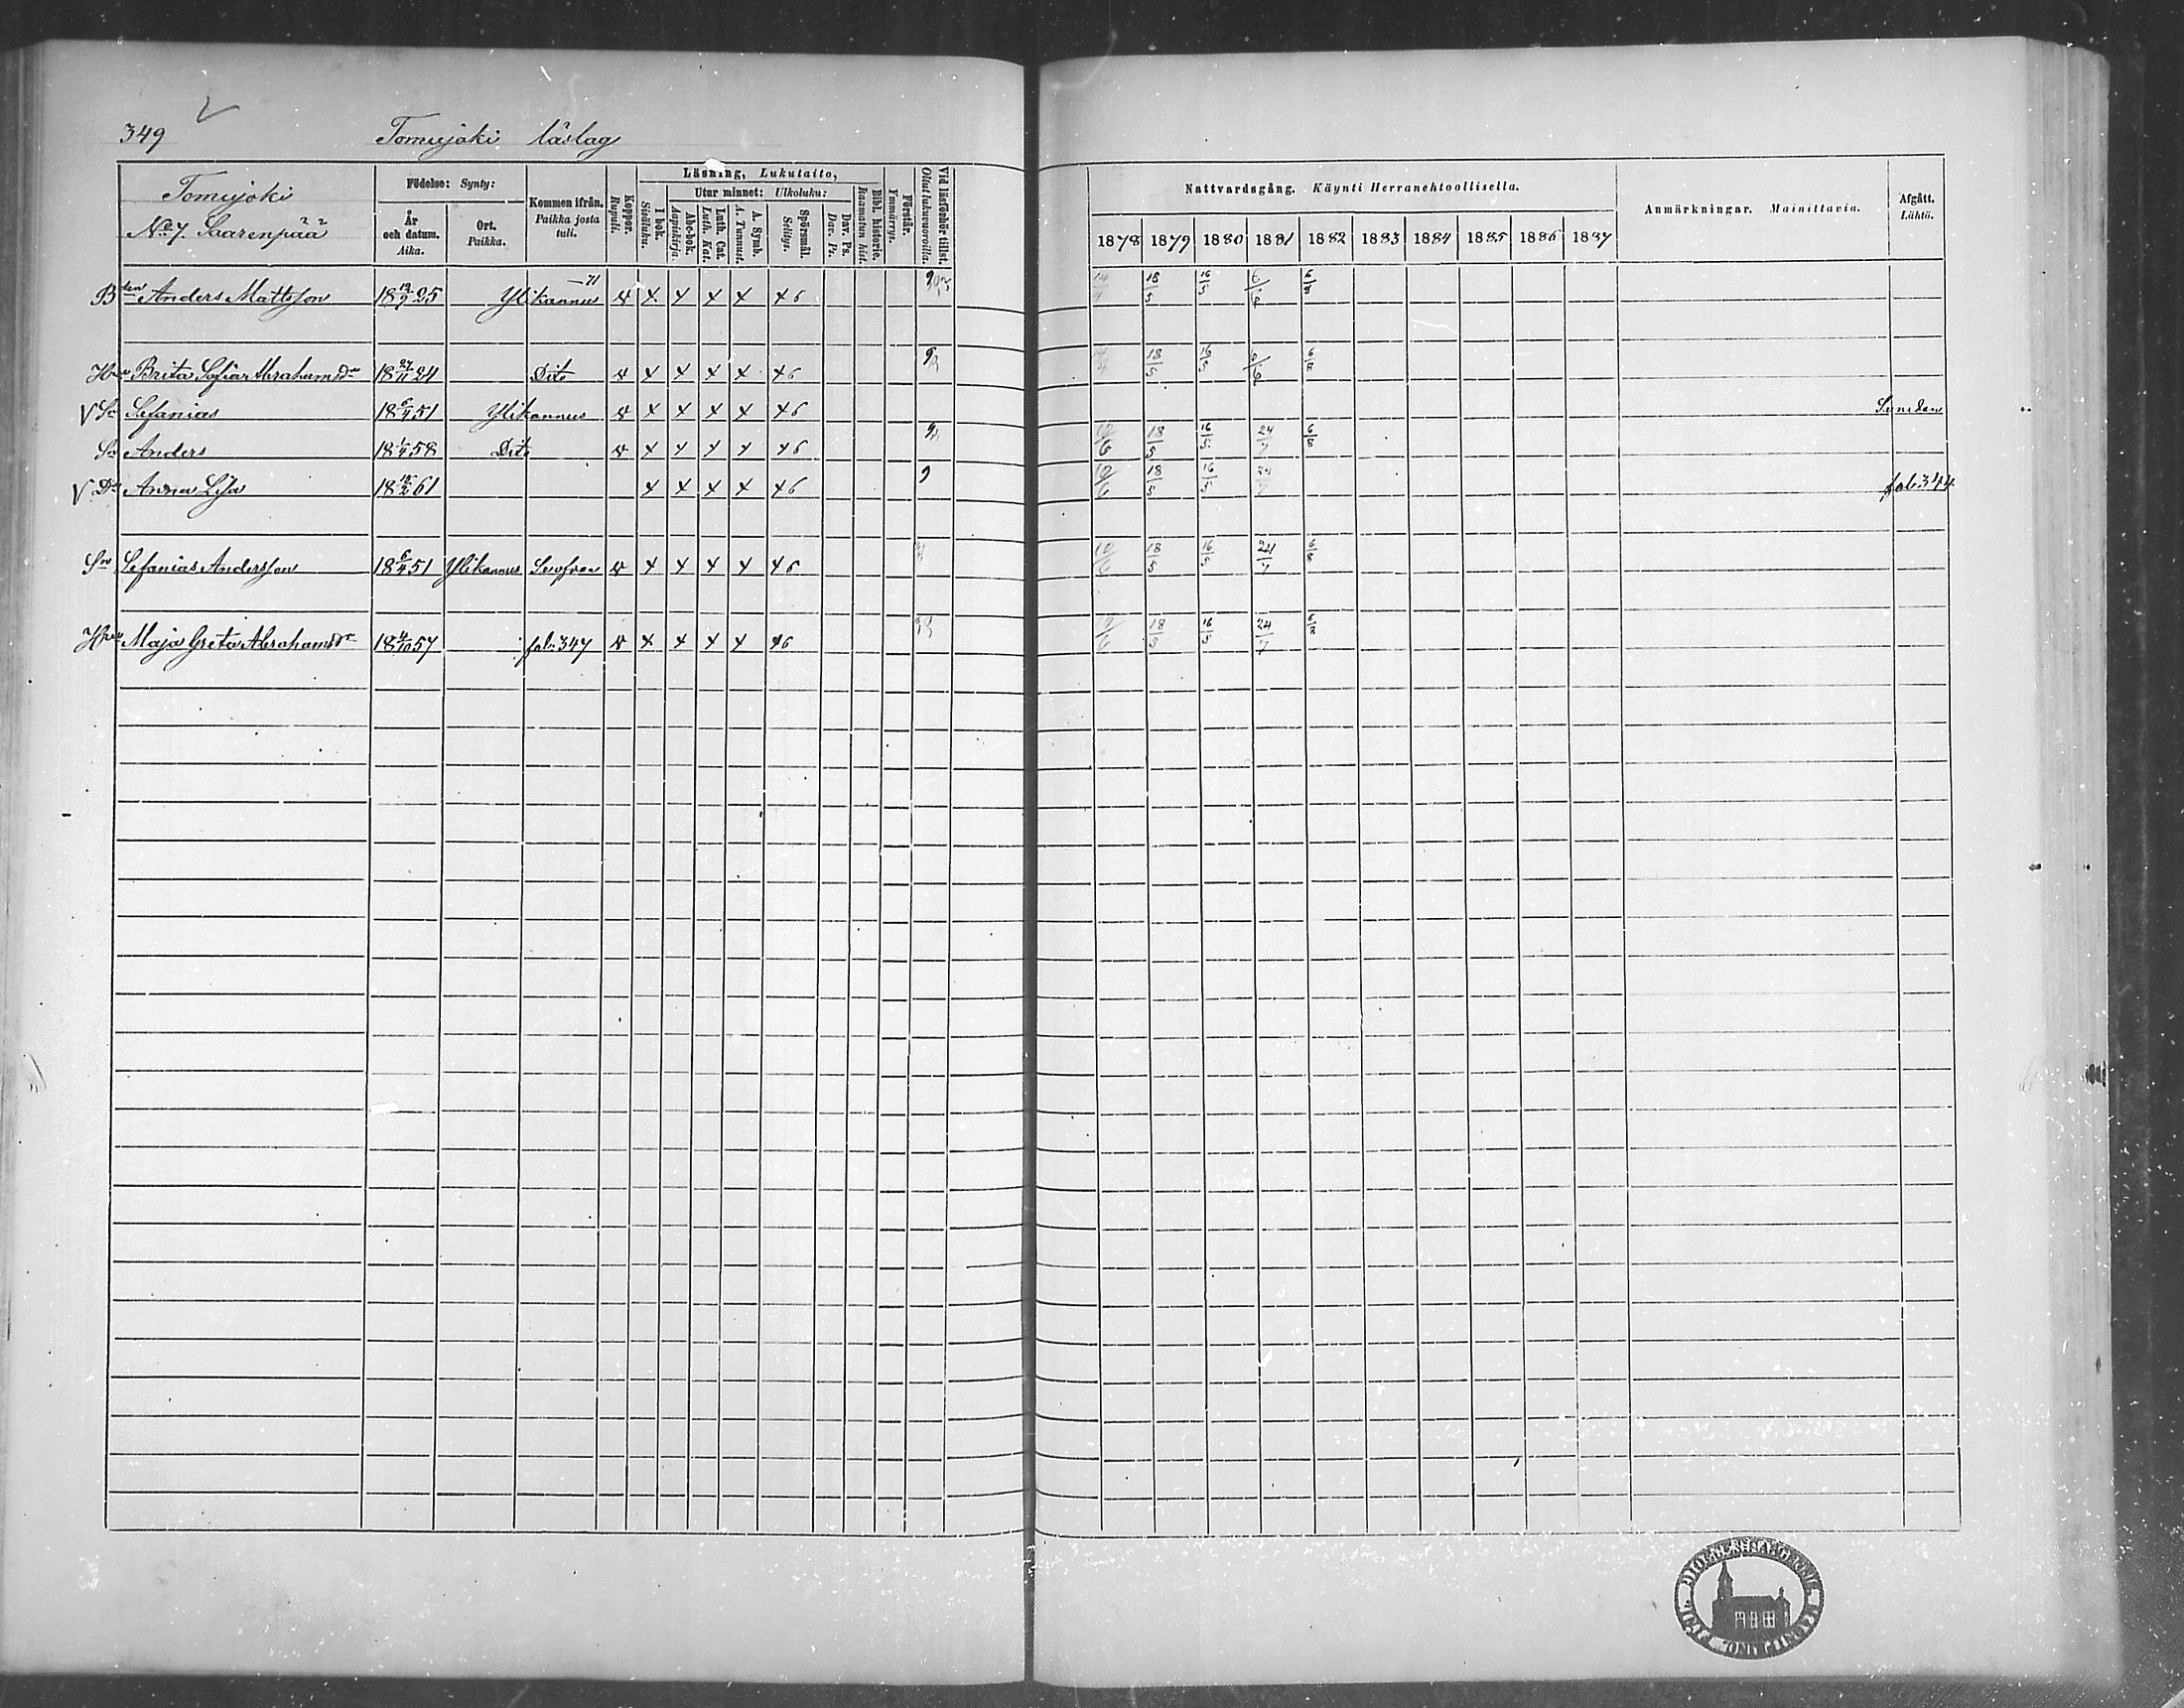 349 Tomujoki läslag
Tomujoki
No 7. Saarenpää
Födelse: Synty:
År och datum. Aika.
Ort. Paikka.
Kommen ifrån. Paikka josta tuli.
Koppor. Rupuli.
Läsning, Lukutaito,
I bok. Sisäluku.
Utur minnet: Ulkoluku:
Abc-bok. Aapiskirja.
Luth. Cat. Luth. Kat.
A. Symb. A. Tunnust.
Spörsmål. Selitys.
Dav. Ps. Dav. Ps.
Bibl. historie. Raamatun hist.
Förstår. Ymmärrys.
Vid läsförhör tillst. Ollut lukuvuoroilla.
Nattvardsgång. Käynti Herranehtoollisella.
1878 1879 1880 1881 1882 1883 1884 1885 1886 1887
Anmärkningar. Mainittavia.
Afgått. Lähtö.
Bden Anders Mattsson 18 19/9 25 Ylikannus 71 v x x x x x6 18/5 16/5 6/6 6/8
Hu Brita Sofia Abrahamsdr 18 27/11 24 Dito v x x x x x6 18/5 16/5 6/6 6/8
V Sn Sefanias 18 6/4 51 Ylikannus v x x x x x6
Sn Anders 18 1/4 58 Dito v x x x x x6 10/6 18/5 16/5 24/7 6/8
V Dr Anna Lisa 18 18/2 61 x x x x x6 10/6 18/5 16/5 24/7 fol. 344
Sn Sefanias Andersson 18 6/4 51 Ylikannus v x x x x x6 10/6 18/5 16/5 24/7 6/8
Hu Maja Greta Abrahamsdr 18 4/10 57 fol. 347 v x x x x x6 10/6 18/5 16/5 24/7 6/8